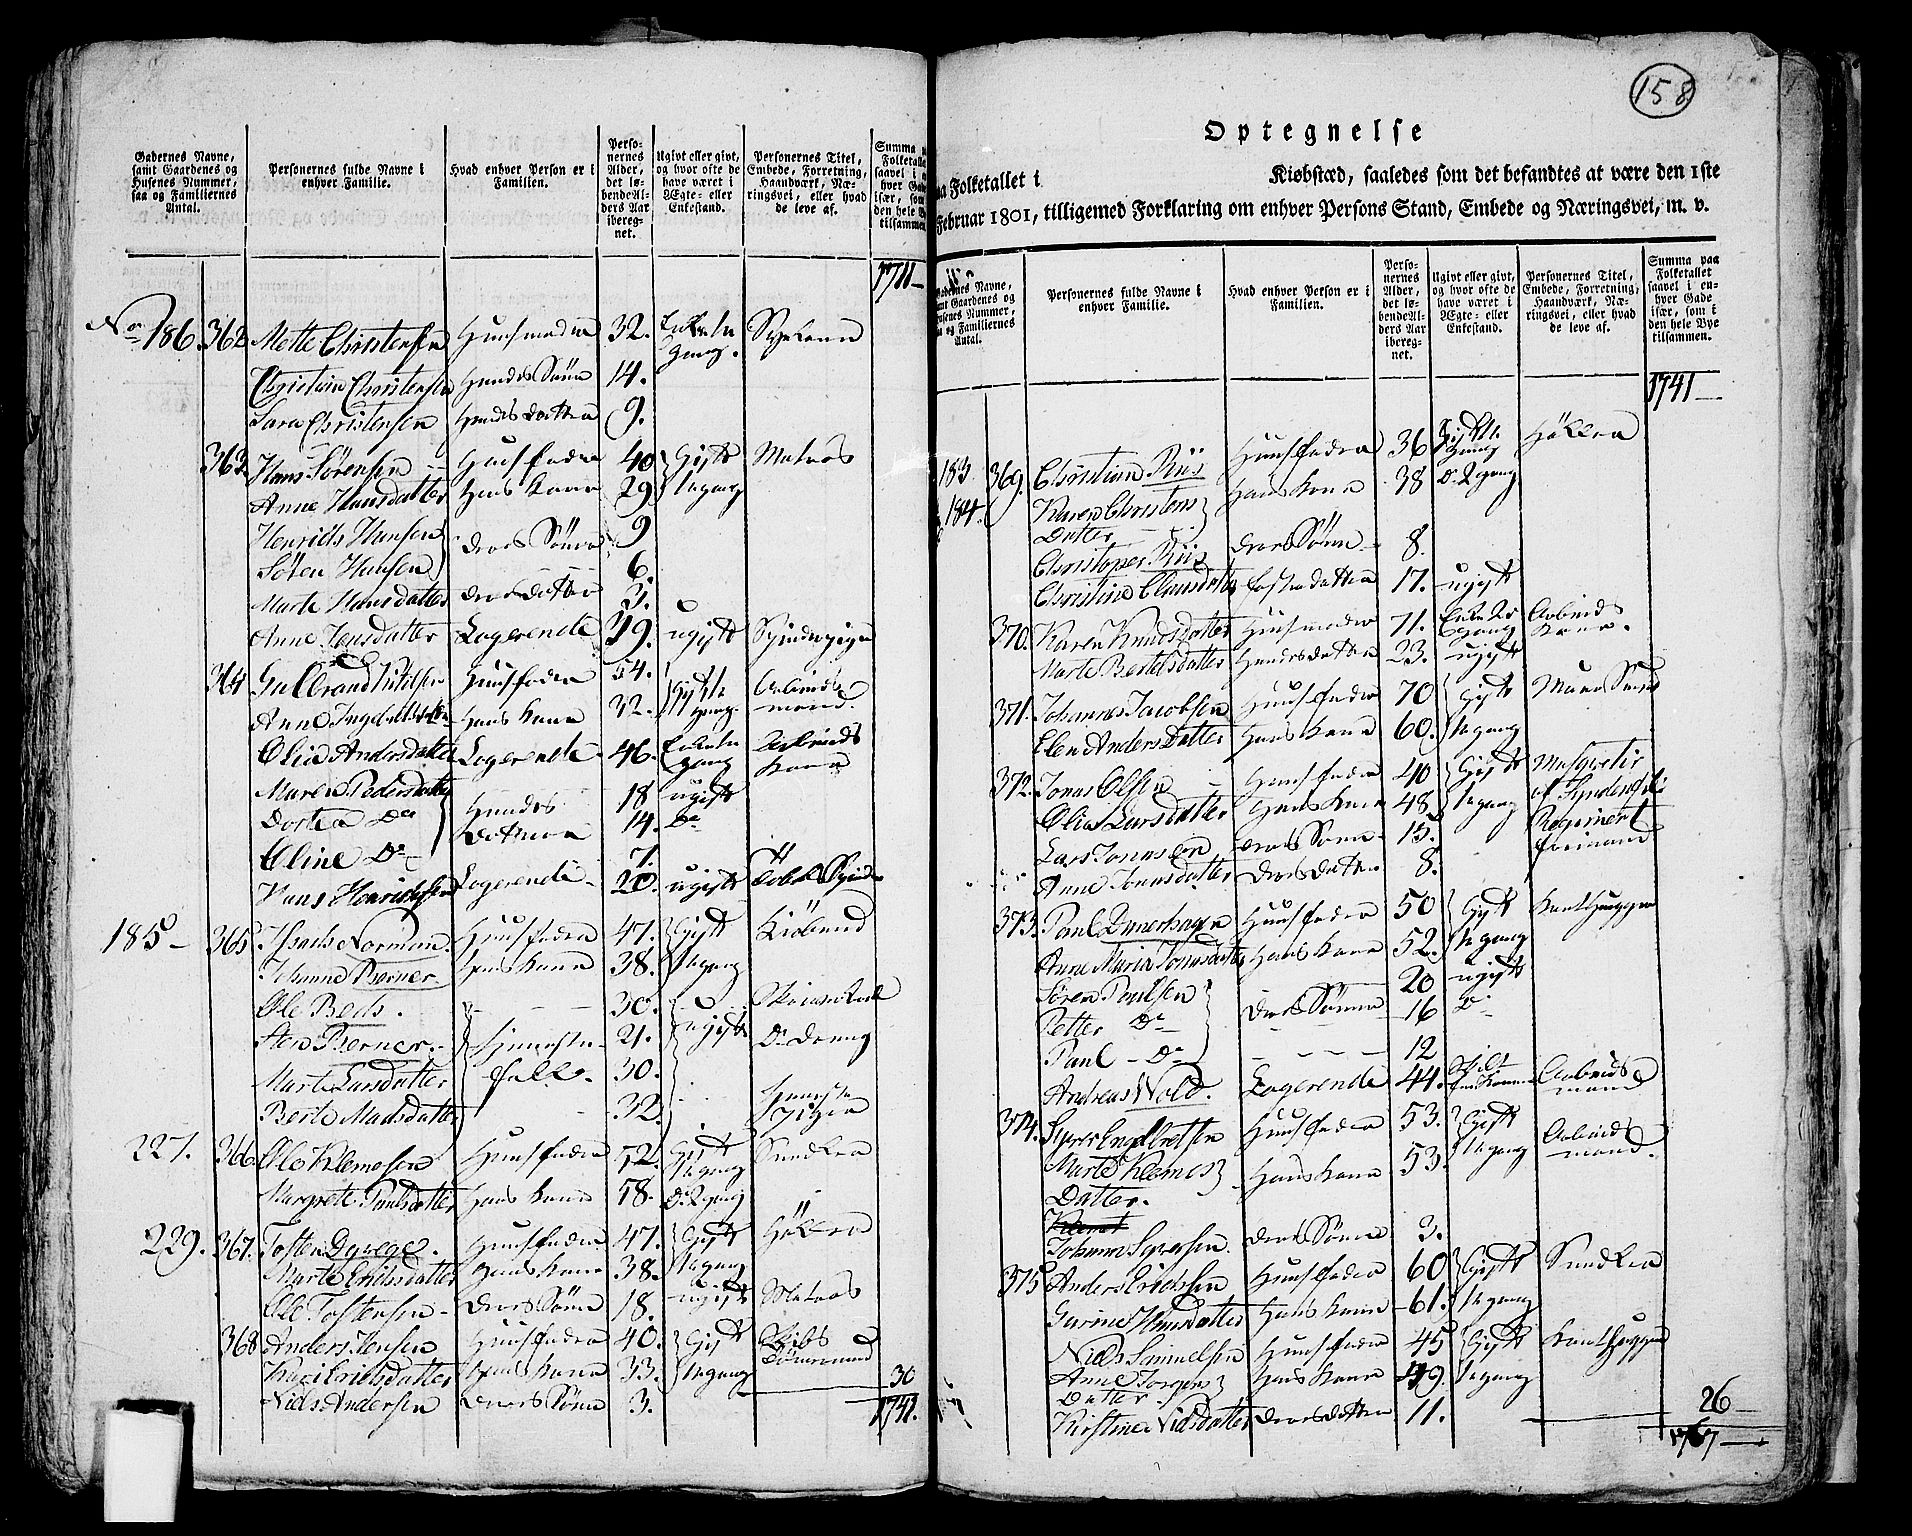 Gadernes Navne, samt Gaardenes og Husenes Nummer, saa og Familiernes Antal.
Personernes fulde Navne i enhver Familie.
Hvad enhver Person er i Familien.
Personernes Alder, det løbende Alders Aar iberegnet.
Ugivt eller givt, og hvor ofte de have været i Ægte- eller Enkestand.
Personernes Titel, Embede, Forretning, Haandværk, Næringsvei, eller hvad de leve af.
1711
No 186. 362 Mette Christensen Huusmoder 32. Enke 1te Gang. Syekone
Christian Christensen Hendes Søn 14.
Sara Christensen Hendes Datter 9.
363 Hans Sørensen Huusfader 40 Gift Matros
Anne Hansdatter Hans Kone 29 1te gang
Henrich Hansen 9
deres Sønner
Søren Hansen 6.
Marte Hansdatter deres datter 3.
Anne Jensdatter Logerende 19. ugift Spindepige
364 Gulbrand Huusfader 54. Gift 1te Gang. Arbeidsmand.
Anne Hans Kone 32.
Olia Andersdatter Logerende 46. Enke 1te gang Arbeids Kone
Maren Pedersdatter 18 ugift
Hendes Dottre
Dortea Do 14. Do
Oline Do 7.
Hans Henrichsen Logerende 20. ugift
185 365 Isach Norman. Huusfader 47. Gift Kiøbmand
Johanne Berner Hans Kone 38. 1te gang
Ole Beds. 30.
Aen Berner. 21. ugift Do Dreng
Huuste folk.
Marte Larsdatter 30.
Berte Madsdatter 32
227. 366 Ole Klemesen Huusfader 52. Gift 1te gang
Margrete Paulsdatter Hans Kone 58. Do 2 gang
229. 367. Tosten Dyrege. Huusfader 47. Gift Høkker
Marte Erichsdatter Hans Kone 38. 1te gang
Ole Tostensen deres Søn 18. ugift Matros
368 Anders Jensen Huusfader 40. Gift Skibs Tømmermand
Kari Erichsdatter Hans Kone 33. 1te gang
30
Niels Andersen deres Søn 3.
1741.
158
Optegnelse
paa Folketallet i Kiøbstæd, saaledes som det befandtes at være den 1ste
Februar 1801, tilligemed Forklaring om enhver Persons Stand, Embede og Næringsvei, m. v.
Personernes fulde Navne i enhver Familie.
Hvad enhver Person er i Familien.
Personernes Alder, det løbende Alders Aar iberegnet.
Ugivt eller givt, og hvor ofte de have været i Ægte- eller Enkestand.
Personernes Titel, Embede, Forretning, Haandværk, Næringsvei, eller hvad de leve af.
Summa paa Folketallet saavel i enhver Gade især, som i den hele Bye tilsammen.
1741
183 369. Christian Riis Huusfader 36 Gift 1te Gang Høkker
184. Karen Christens Datter Hans Kone 38 Do 2 gang
Christoper Riis deres Søn 8.
Christine Clausdatter foster datter 17. ugift
370. Karen Knudsdatter Huusmoder 71. Enke 2 gang Arbeids Kone.
Marte Bertelsdatter Hendes datter 23. ugift
371. Johannes Jacobsen Huusfader 70 Gift Muur Svend
Elen Anders Datter Hans Kone 60. 1te gang
372. Jonas Olsen Huusfader 40 Gift
Olia Larsdatter Hans Kone 48. 1te gang
Lars Jonasen deres Søn 15. Regiment
Anne Jonasdatter deres datter 8.
373. Paul Huusfader 50 Gift
Anne Maria Jonasdatter Hans Kone 52. 1te gang
Søren Paulsen 20 ugift
Petter Do deres Sønner 16 Do
Paul Do 12
Andreas Wold. Logerende 44. Arbeids mand
374. Syver Engelbretsen Huusfader 53. Gift Arbeids mand.
Marte Klemes Datter. Hans Kone 53. 1te gang
Johannes Syversen. deres Søn 3.
375 Anders Erichsen Huusfader 60 Gift
Gurine Hansdatter Hans Kone 61. 1te gang
Niels Samuelsen Huusfader 45 Gift
Anne Jørgens Datter. Hans Kone 49. 1te gang
Kirstine Nielsdatter deres datter 11.
26
1767